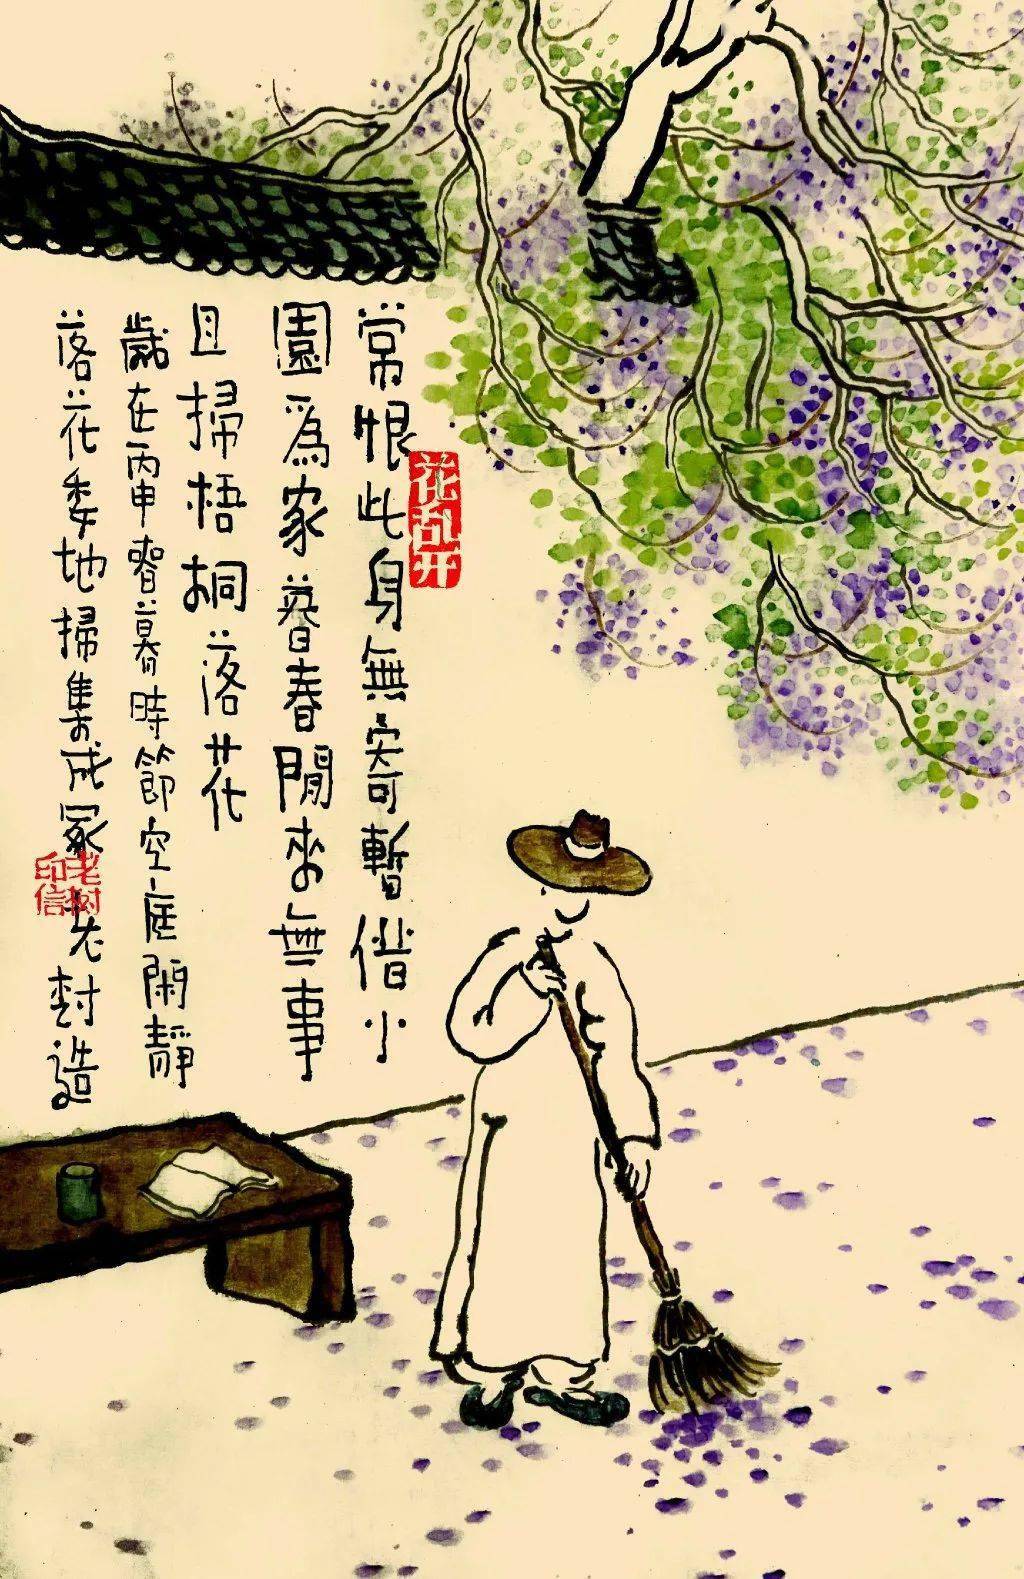 花乱开
常恨此身無寄暫借小
園爲家暮春閒來無事
且掃梧桐落花
歲在丙申春暮時節空庭閑靜
落花委地掃集成冢老樹造
老树印信